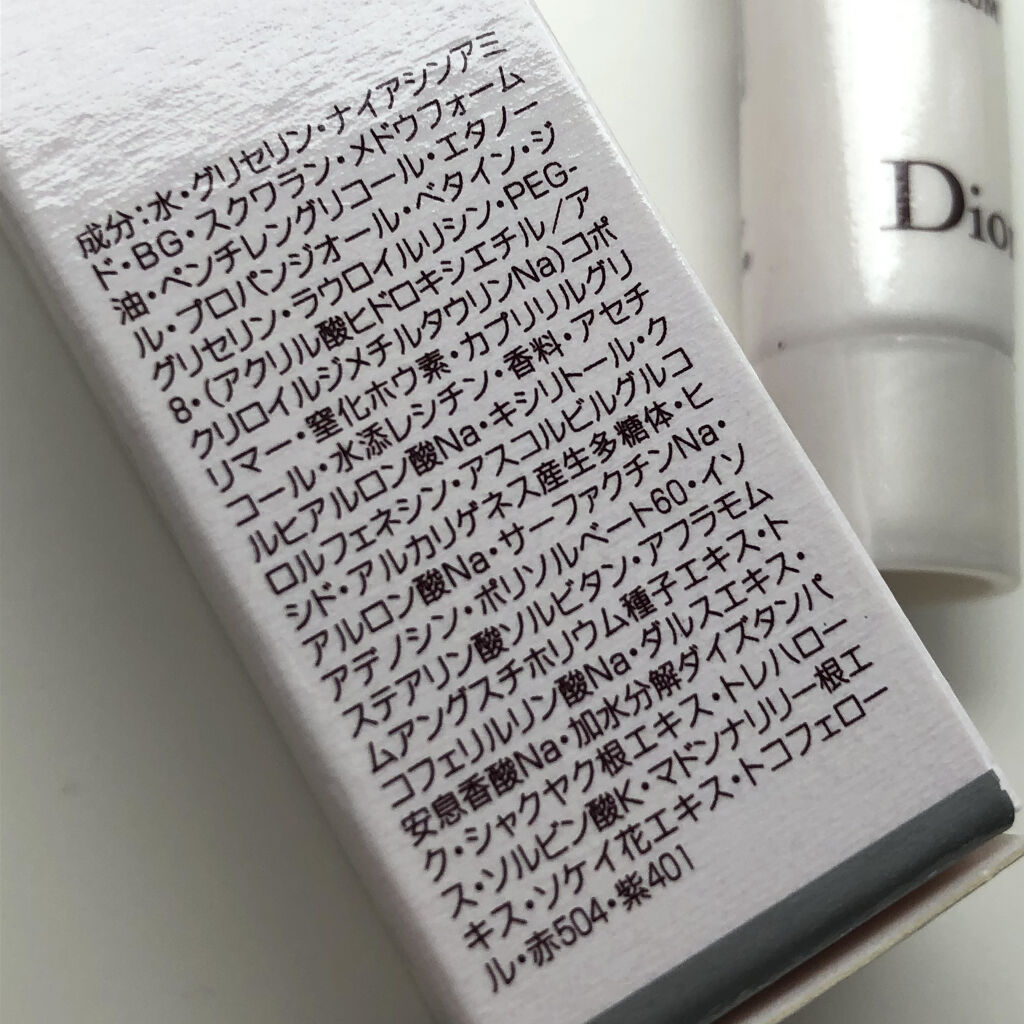 成分:水・グリセリン・ナイアシンアミ
ド・BG・スクワラン・メドウフォーム
油・ペンチレングリコール・エタノー
ル・プロパンジオール・ベタイン・ジ
グリセリン・ラウロイルリシン・PEG-
8・(アクリル酸ヒドロキシエチル/ア
クリロイルジメチルタウリンNa)コポ
リマー・窒化ホウ素・カプリリルグリ
コール・水添レシチン・香料・アセチ
ルヒアルロン酸Na・キシリトール・ク
ロルフェネシン・アスコルビルグルコ
シド・アルカリゲネス産生多糖体・ヒ
アルロン酸Na・サーファクチンNa・
アデノシン・ポリソルベート60・イソ
ステアリン酸ソルビタン・アフラモム
ムアングスチホリウム種子エキス・ト
コフェリルリン酸Na・ダルスエキス・
安息香酸Na・加水分解ダイズタンパ
ク・シャクヤク根エキス・トレハロー
ス・ソルビン酸K・マドンナリリー根エ
キス・ソケイ花エキス・トコフェロー
ル・赤504・紫401
Dior